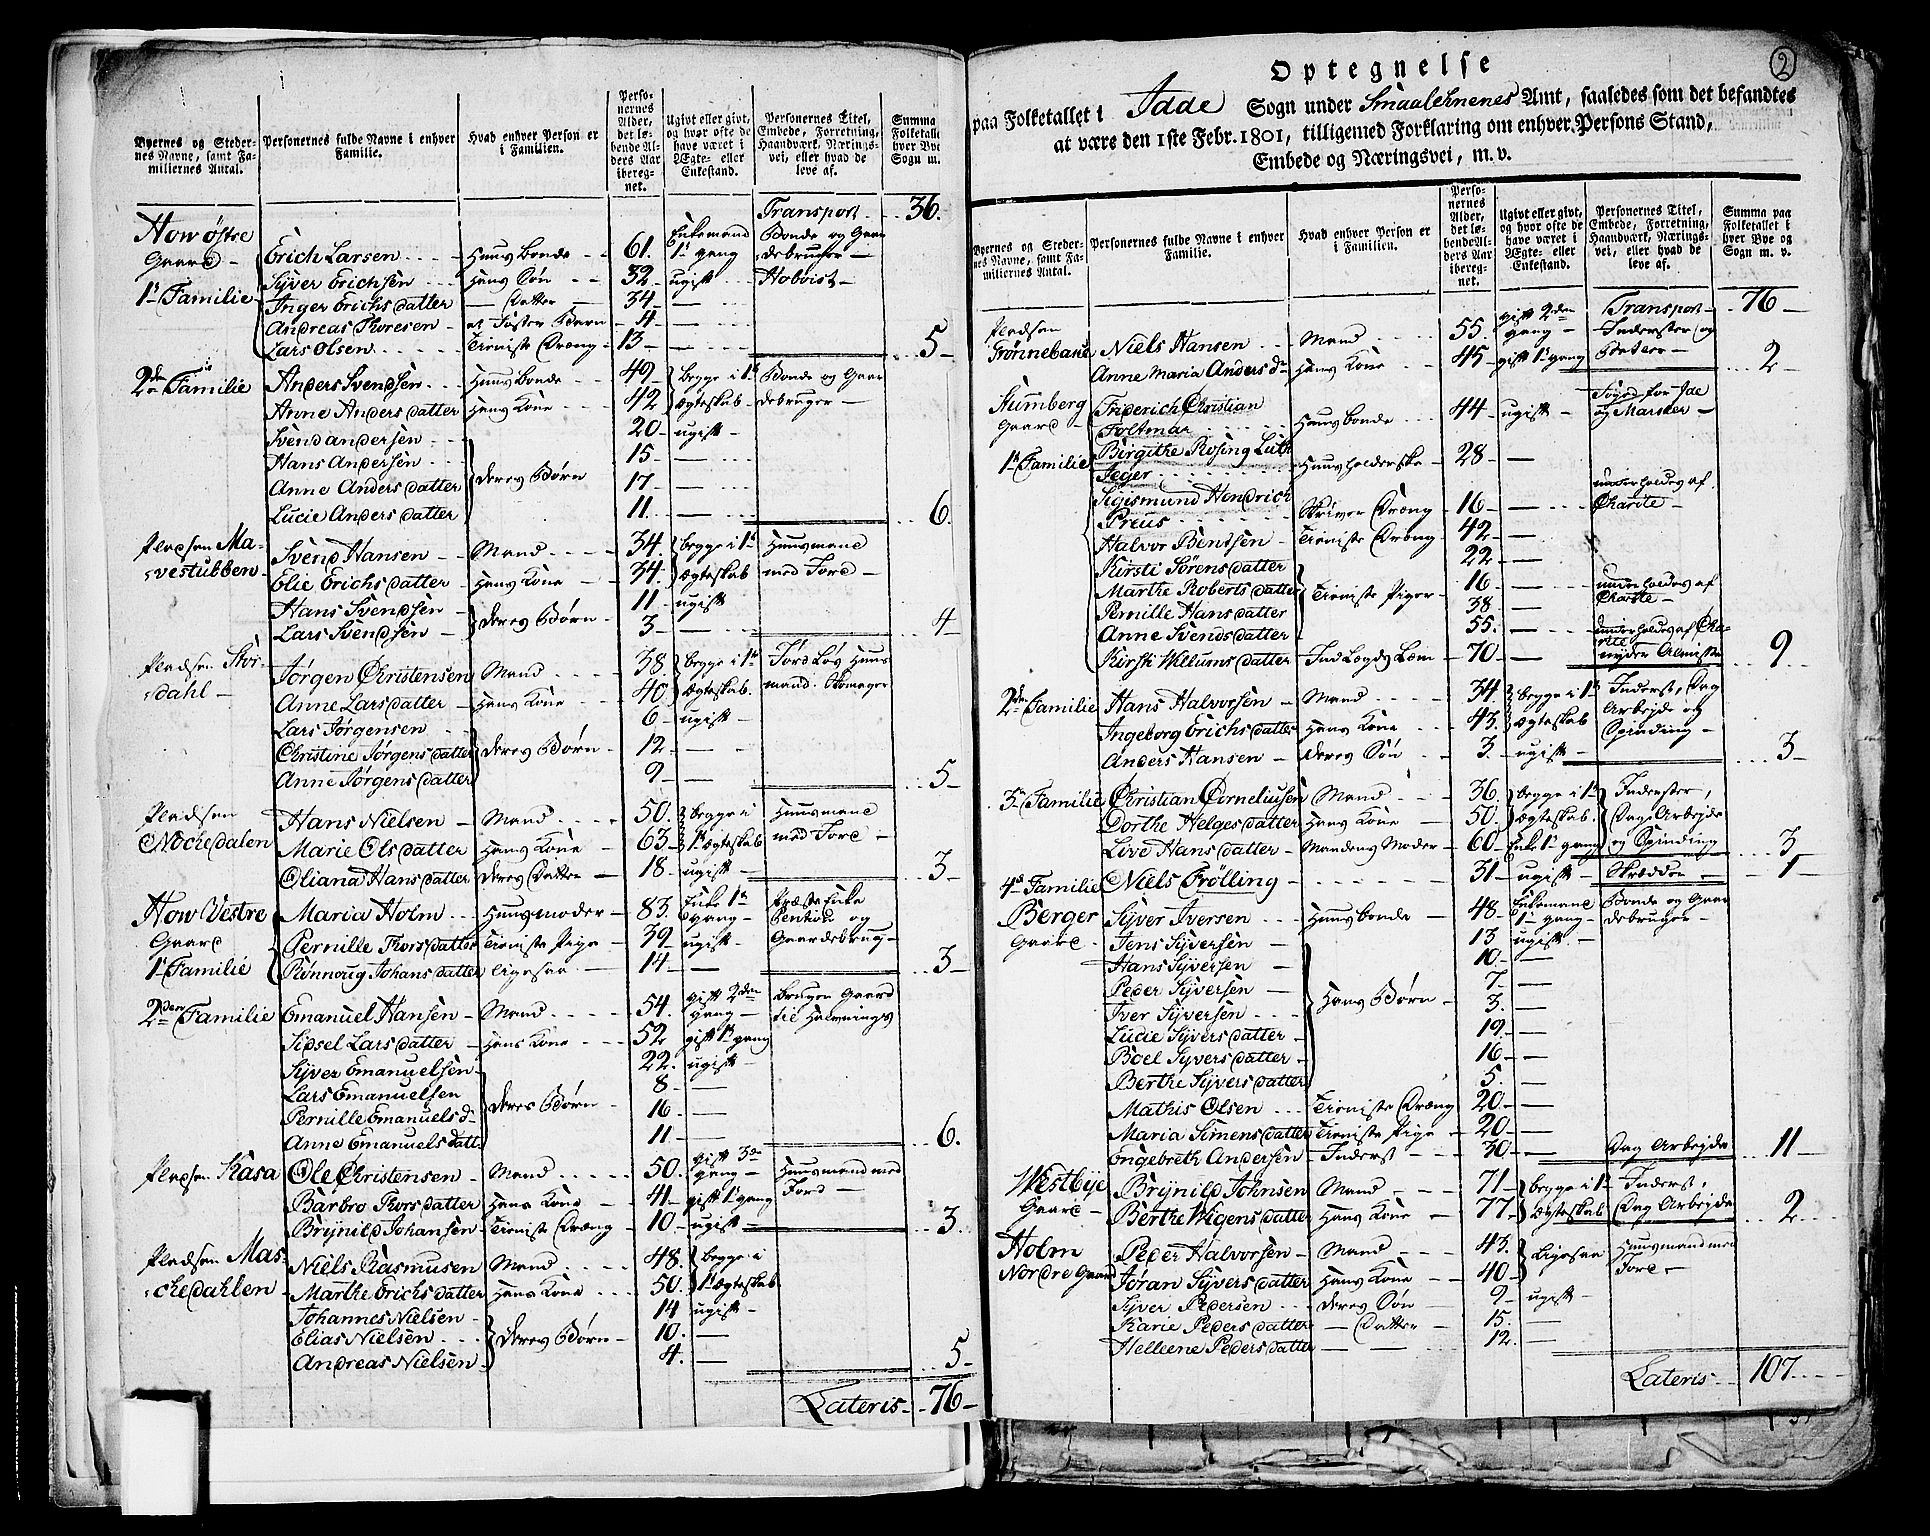 Byernes og Stedernes Navne, samt Familiernes Antal.
Personernes fulde Navne i enhver Familie.
Hvad enhver Person er i Familien.
Personernes Alder, det løbende Alders Aar iberegnet.
Ugivt eller givt, og hvor ofte de have været i Ægte- eller Enkestand.
Personernes Titel, Embede, Forretning, Haandværk, Næringsvei, eller hvad de leve af.
Summa Folketallet hver Bye Sogn m.
Transport 36.
How østre Enkemand Bonde og Gaar
Gaard - Erich Larsen Huus Bonde 61. 1te gang debruger
Syver Erichsen Hans Søn 32 ugift Hobvist
1te Familie Inger Erichs datter — Datter 34 —
Andreas Thoresen et Foster Barn 4 —
Lars Olsen Tieniste Dræng 13 — 5
2de Familie Anders Svendsen Huus Bonde 49 begge i 1te Bonde og Gaar
Anne Anders datter Hans Kone 42 Ægteskab debruger
Svend andersen 20 ugift
Hans Andersen 15 —
Anne Anders datter deres Børn 17 —
Lucie Anders datter 11 — 6.
Pladsen Ma- Svend Hansen Mand 34. begge i 1te Huusmand
vestubben Elie Erichs datter Hans Kone 34. Ægteskab med Jord
Hans Svendsen 11 ugift
Lars Svendsen deres Børn 3 — 4
Pladsen Stor- Jørgen Christensen Mand 38. begge i 1te Jord Løs Huus
dahl Anne Lars datter Hans Kone 40 Ægteskab. mand. Skomager
Lars Jørgensen 6 ugift
Christine Jørgens datter deres Børn 12 —
Anne Jørgens datter 9 — 5
Pladsen Hans Nielsen Mand 50. begge i Huusmand
Nochedalen Marie Ols datter Hans Kone 63 1te Ægteskab med Jord
Oliana Hans datter deres Datter 18 ugift 3
How Vestre Maria Holm Huusmoder 83. Enke 1te gang Præste Enke
Gaard Pernille Thors datter Tieniste Pige 39 ugift Pention og Gaardebrug
1te Familie Rønnorig Johans datter ligesaa 14 — 3
2den Familie Emanuel Hansen Mand 54. gift 2den gang Bruger Gaard til Halvnings
Sidsel Lars datter Hans Kone 52 gift 1te gang
Syver Emanuelsen 22. ugift
Lars Emanuelsen 8 —
Pernille Emanuels d deres Børn 16 —
Anne Emanuels datt 11 — 6.
Pladsen Kasa Ole Christensen Mand 50. gift 3de gang Huusmand med Jord
Barbro Thors datter Hans Kone 41 gift 1te gang
Brynild Johansen Tieniste Dræng 10 ugift 3
Pladsen Mas- Niels Rasmusen Mand 48. begge i
chedahlen Marthe Erichs datter Hans Kone 50. 1te Ægteskab
Johannes Nielsen 14 ugift
Elias Nielsen deres Børn 10. —
Andreas Nielsen 4. — 5
Lateris 76
2
Optegnelse
paa Folketallet i Idde Sogn under Smaalehnenes Amt, saaledes som det befandtes
at være den 1ste Febr. 1801, tilligemed Forklaring om enhver Persons Stand,
Embede og Næringsvei, m. v.
Byernes og Stedernes Navne, samt Familiernes Antal.
Personernes fulde Navne i enhver Familie.
Hvad enhver Person er i Familien.
Personernes Alder, det løbende Alders Aar iberegnet.
Ugivt eller givt, og hvor ofte de have været i Ægte- eller Enkestand.
Personernes Titel, Embede, Forretning, Haandværk, Næringsvei, eller hvad de leve af.
Summa paa Folketallet i hver Bye og Sogn m. v.
Transport 76
Pladsen Niels Hansen Mand 55. gift 2den gang Inderster og
Trønnebake Anne Maria Anders d Hans Kone 45 gift 1te gang Betler 2
Stumberg Friderich Christian Foged for Ide
Gaard Foltmar Huusbonde 44 ugift og Marcker
1te Familie Birgithe Rosing Luth
Jeger Huusholderske 28 —
Sigismund Hendrich underholdes af
Preus Skriver Dræng 16 — Charite
Halvor Bentsen Tieniste Dræng 42 —
Kirsti Sørens datter 22 —
Marthe Roberts datter Tieniste Piger 16 — underholdes af Charite
Pernille Hans datter 38 —
Anne Svends datter 55. — underholdes af Cha-
Kirsti Willums datter Indlagds Lem 70 — rite nyder Almisse 9
2de Familie Hans Halvorsen Mand 34. begge i 1te Inderst, Dag
Ingeborg Erichs datter Hans Kone 43. Ægteskab Arbejde og
Anders Hansen deres Søn 3. ugift Spinding 3
3de Familie Christian Corneliusen Mand 36 begge i 1te Inderster,
Dorthe Helges datter Hans Kone 50. Ægteskab. Dag Arbejde
Live Hans datter Mandens Moder 60 Enke 1te gang og Spinding 3
4de Familie Niels Frølling 31 ugift Skrædder 1
Berger Syver Iversen Huusbonde 48 Enkemand Bonde og Gaar
Gaard Jens Syversen 13 1te gang ugift debruger
Hans Syversen 10 —
Peder Syversen 7 —
Iver Syversen Hans Børn 3. —
Lucie Syvers datter 19 —
Boel Syvers datter 16 —
Berthe Syvers datter 5. —
Mathis Olsen Tieniste Dræng 20 —
Maria Simens datter Tieniste Pige 20 —
Engebreth Andersen Inderst 30 — Dag Arbejde 11
Westbye Brynild Johnsen Mand 71 begge i 1te Inderst,
Gaard Berthe Wigens datter Hans Kone 77 Ægteskab Dag Arbejde 2
Holm Peder Halvorsen Mand 43. Ligesaa Huusmand med
Nordre Gaard Jøran Syvers datter Hans Kone 40 Jord
Syver Pedersen deres Søn 9 ugift
Karie Peders datter — Datter 15. —
Helleene Peders datter — — 12. —
Lateris 107